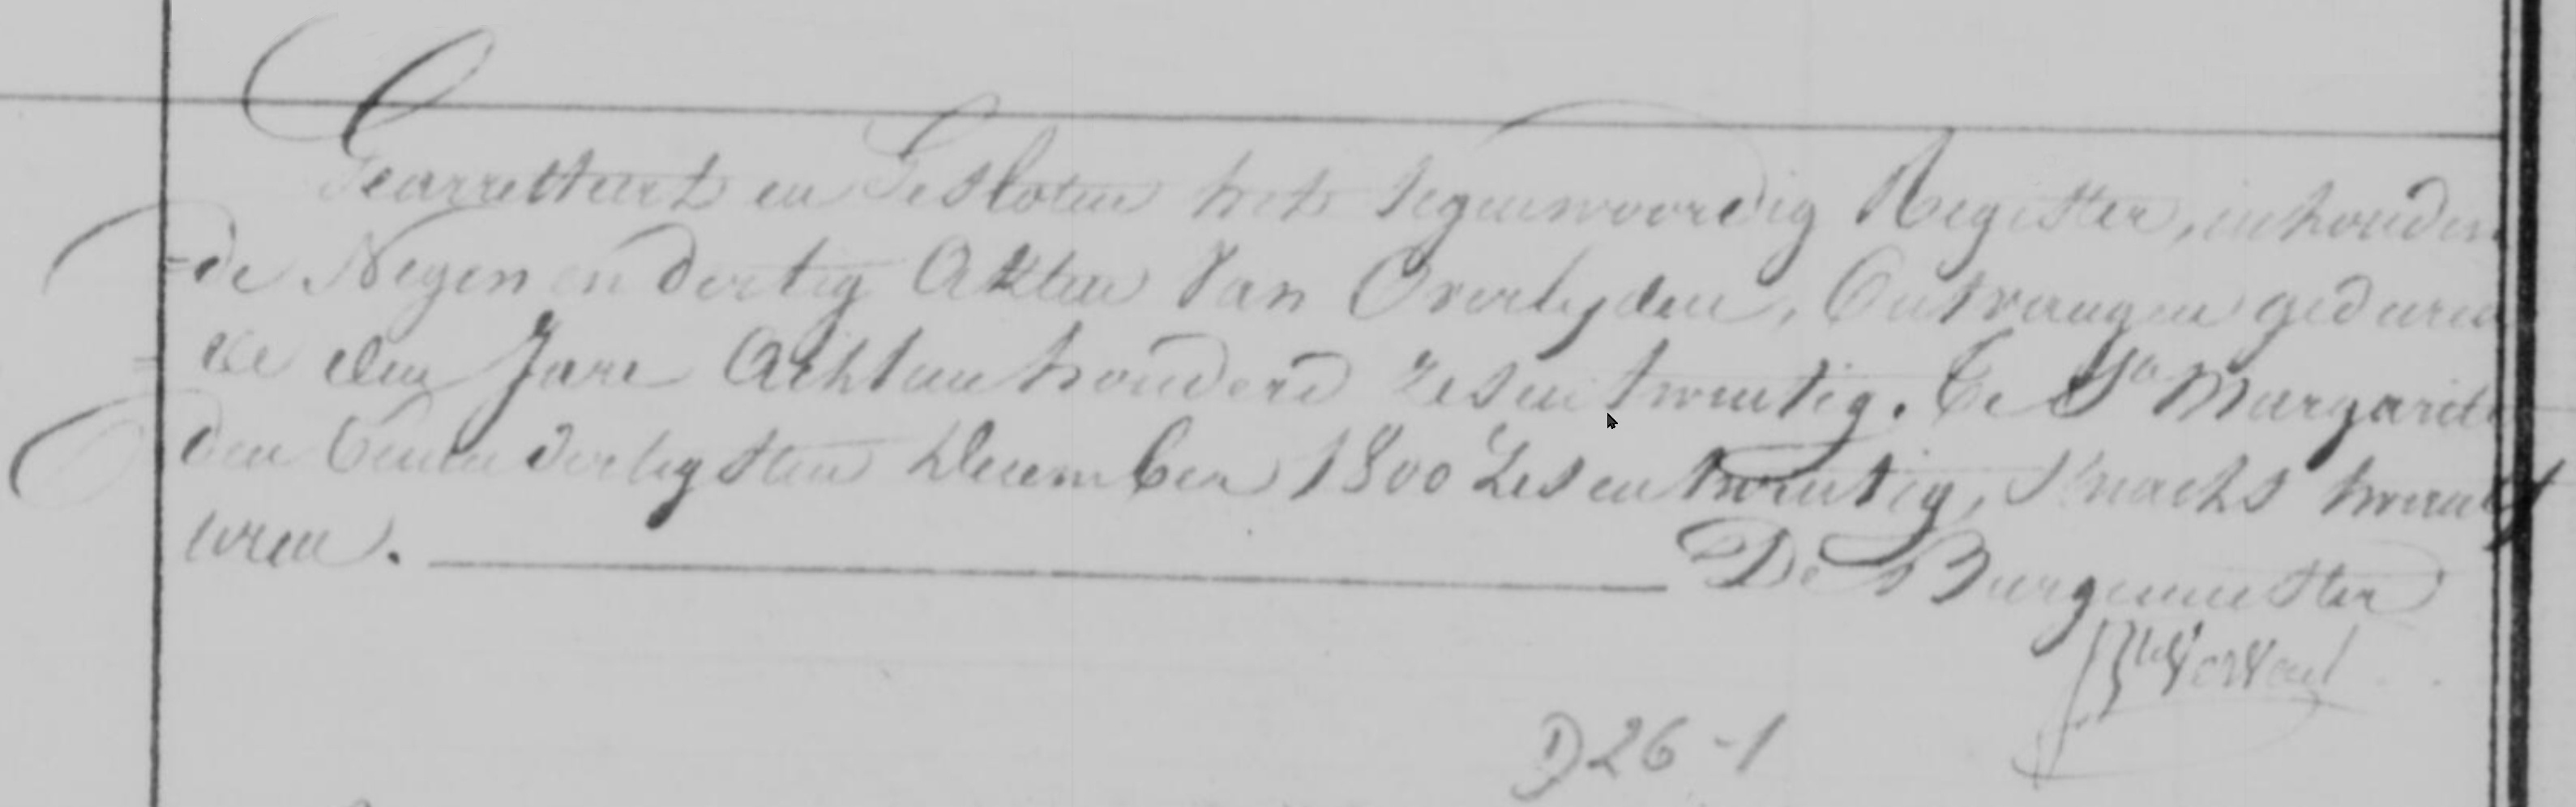 Gearretteert en Gesloten het tegenwoordig Register, inhouden
=de Negen en dertig Akten van Overlyden, Ontvangen geduren
=de den Jare Achtien honderd zesentwintig. Te Sta Margarite
den Eenen dertigsten December 1800 Zesentwintig, snachts twaalf
uren. De Burgemeester
D 26-1